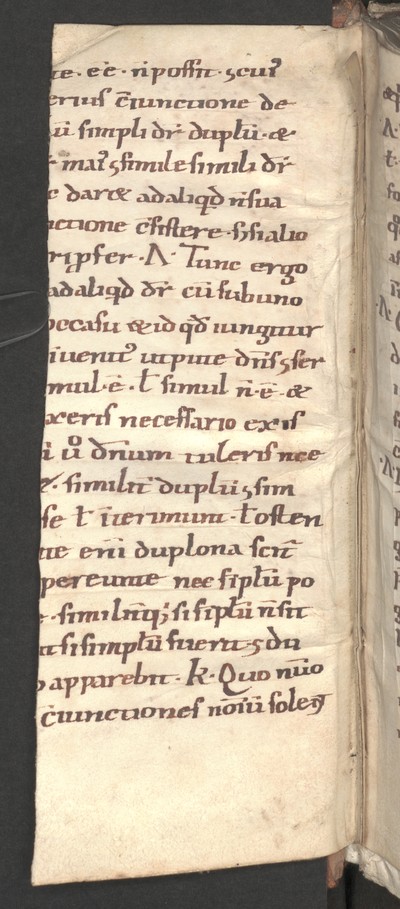 te. eē. n̄ possit. ꝯ cui᷒
erius c̄iunctione de
ū simpli dr̄ duplū. &
mai᷒ ꝯ simile simili dr̄
c dar& ad aliqđ n̄ sua
nctione c̄sistere. s; si alio
rip̄ser. Λ. Tunc ergo
ad aliqđ dr̄ cū sub uno
occasu & id qđ iungitur
iuenit᷒ ut pute dn̄s ꝯ ser
mul. ē. ł simul n̄. ē. &
xeris necessario ex is
i ů dn̄ium tuleris nec
&. similit̄ duplū ꝯ sim
se ł īterimunt. ł osten
tte eni duplo na scr̄t
pereunte nec siplū po
. simil n̄q; si siplū n̄ sit
t si simplū fuerit ꝯ du
apparebit. k. Quo nūo
c̄iunctiones noīū solent